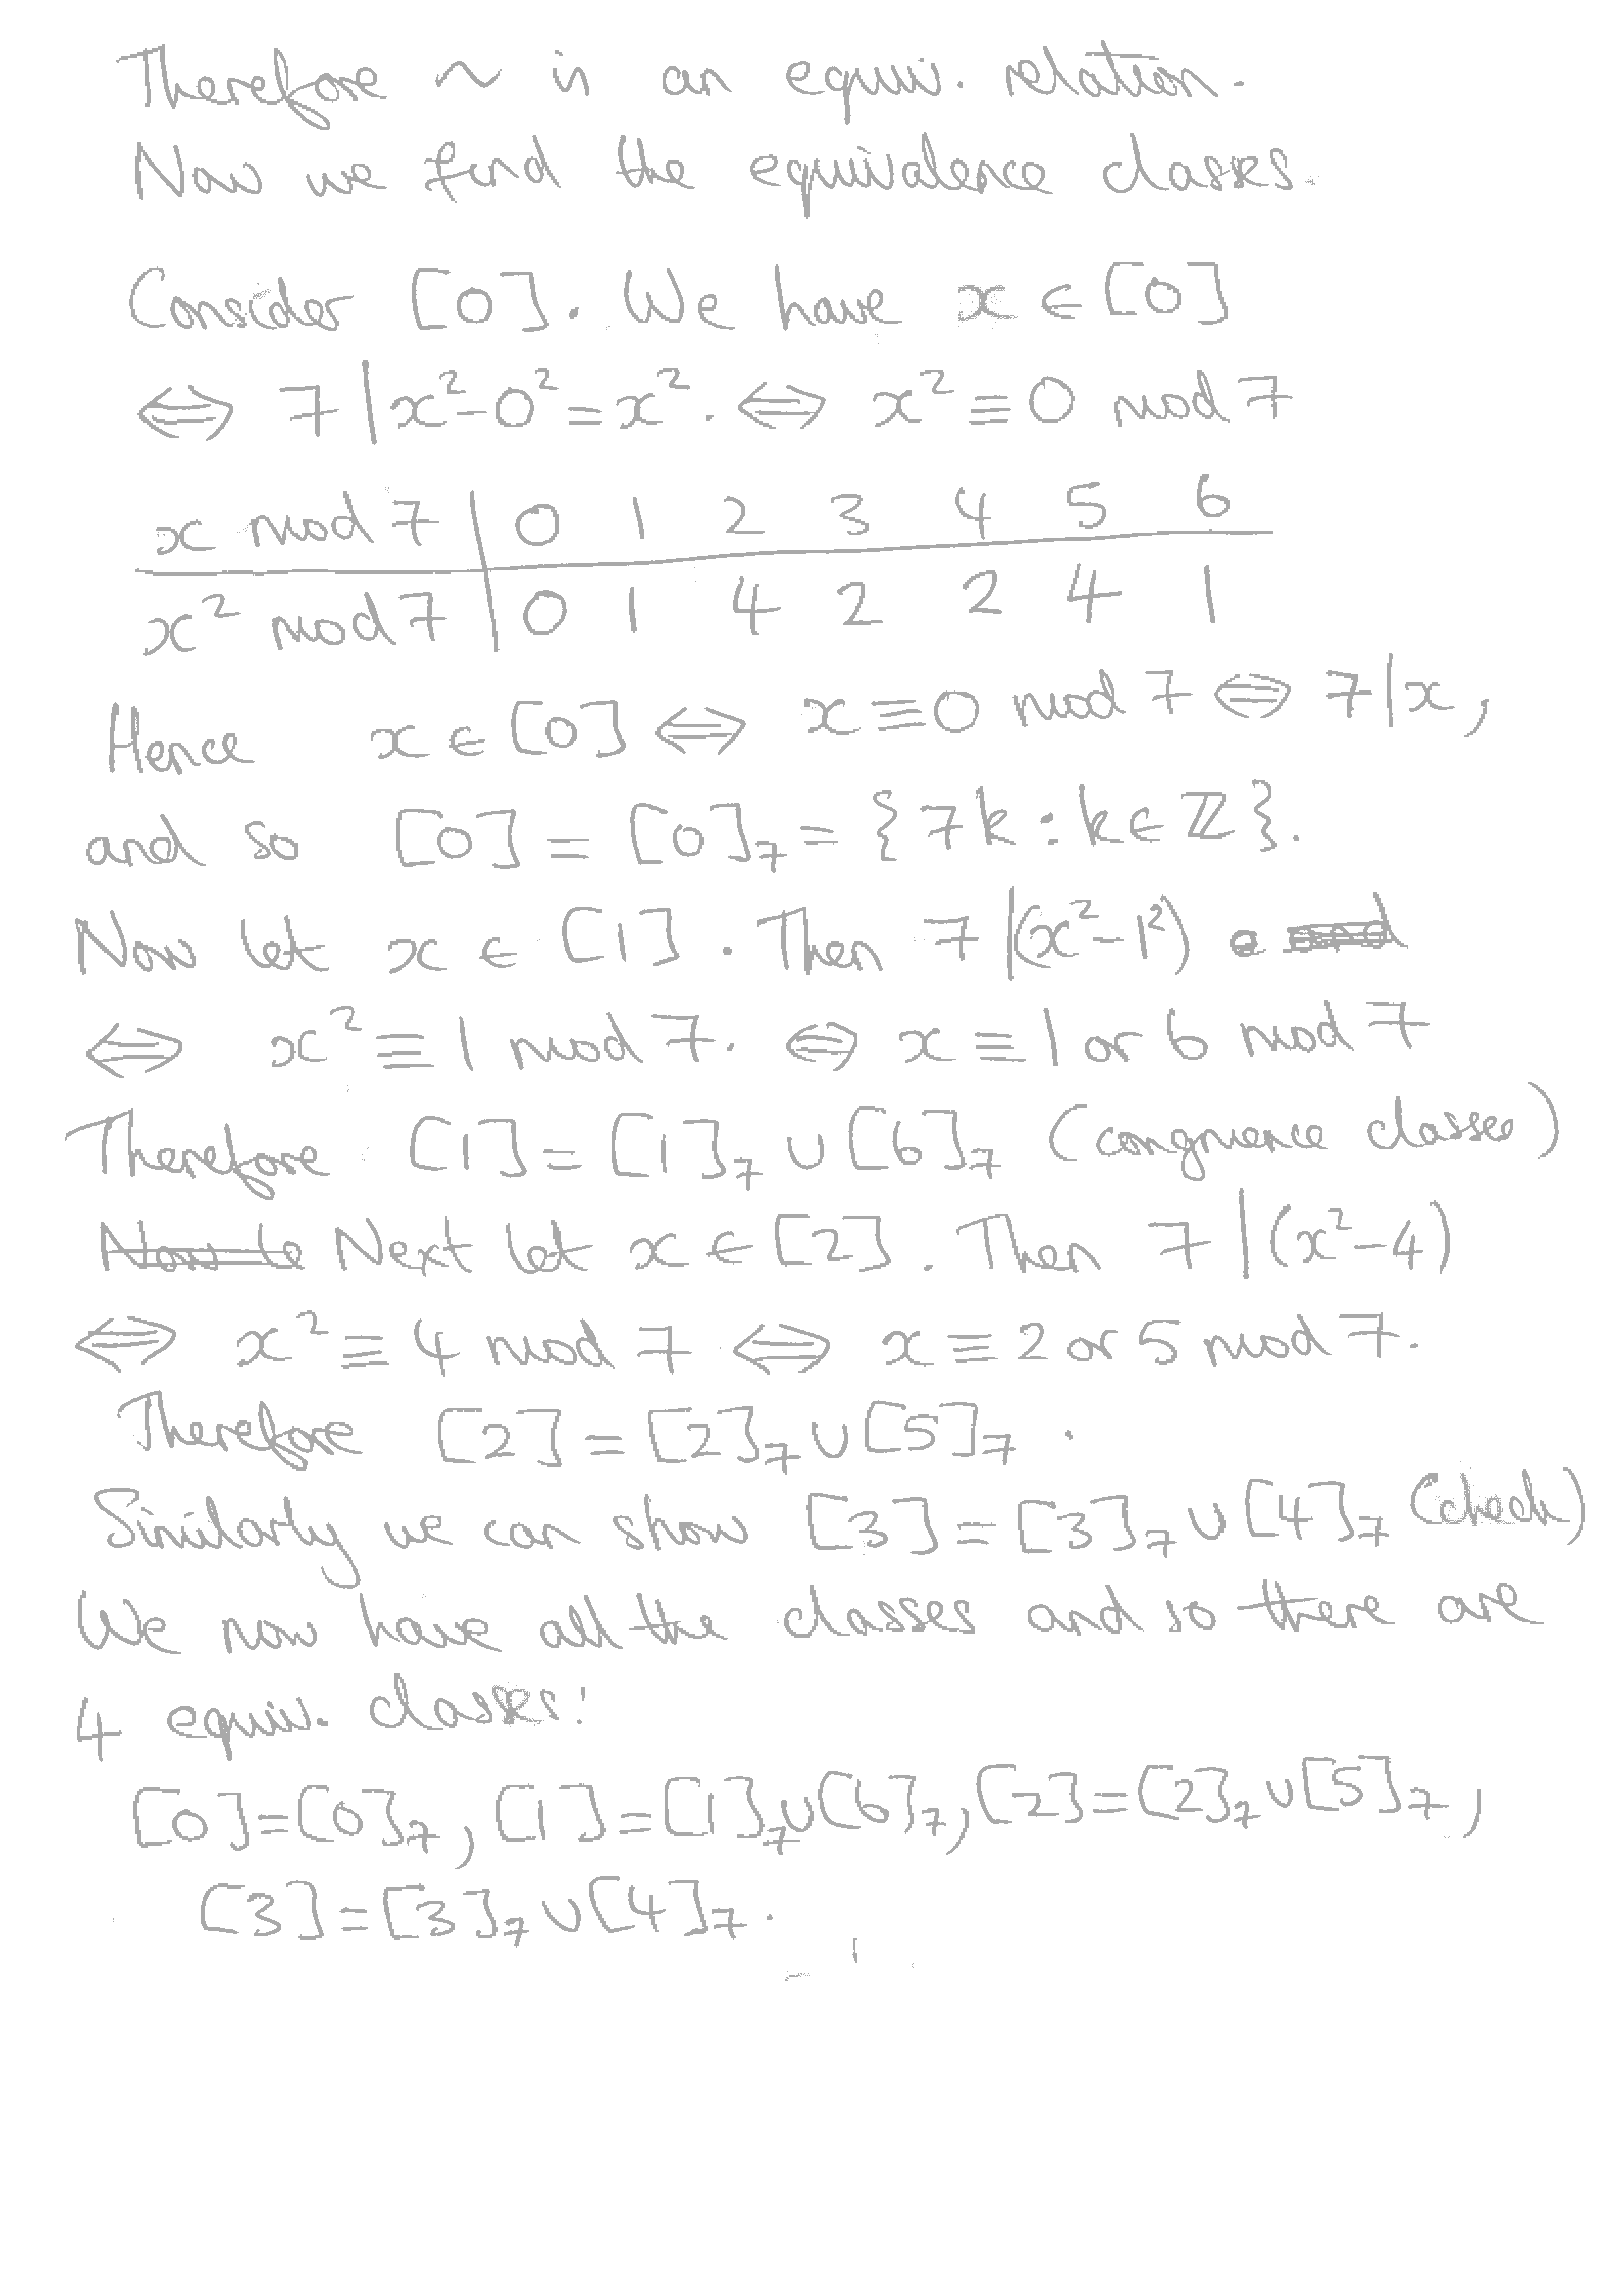 Therefore ~ is an equiv. relation.
Now we find the equivalence classes.
Consider [0]. We have x ∈ [0]
⇔ 7 | x² - 0² = x². ⇔ x² ≡ 0 mod 7
x mod 7 | 0 1 2 3 4 5 6
x² mod 7 | 0 1 4 2 2 4 1
Hence x ∈ [0] ⇔ x ≡ 0 mod 7 ⇔ 7 | x,
and so [0] = [0]₇ = {7k : k ∈ ℤ}.
Now let x ∈ [1]. Then 7 | (x² - 1²) and
⇔ x² ≡ 1 mod 7. ⇔ x ≡ 1 or 6 mod 7
Therefore [1] = [1]₇ ∪ [6]₇ (congruence classes)
Now le Next let x ∈ [2]. Then 7 | (x² - 4)
⇔ x² ≡ 4 mod 7 ⇔ x ≡ 2 or 5 mod 7.
Therefore [2] = [2]₇ ∪ [5]₇.
Similarly we can show [3] = [3]₇ ∪ [4]₇ (check)
We now have all the classes and so there are
4 equiv. classes:
[0] = [0]₇, [1] = [1]₇ ∪ [6]₇, [2] = [2]₇ ∪ [5]₇,
[3] = [3]₇ ∪ [4]₇.